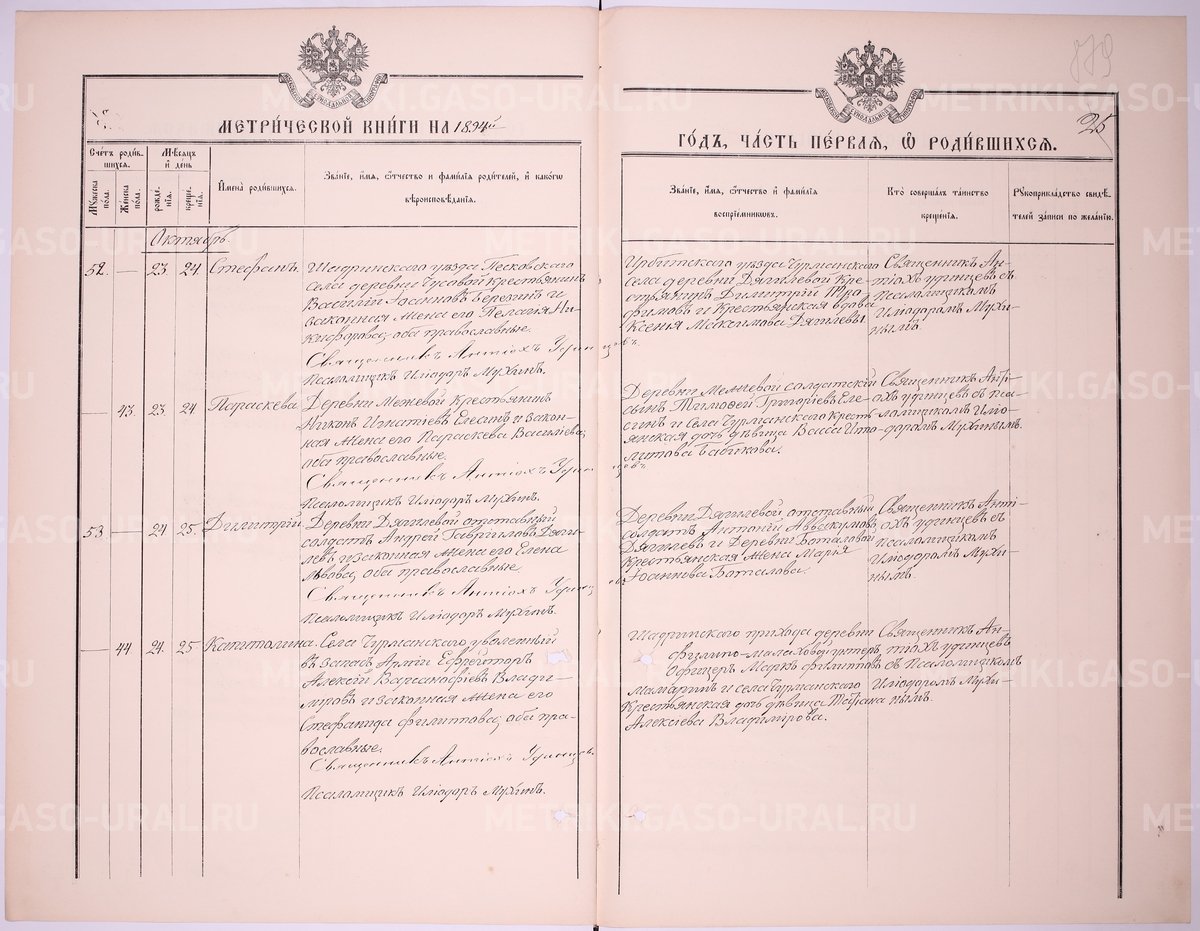 МЕТРИЧЕСКОЙ КНИГИ НА 1894й
ГОДЪ, ЧАСТЬ ПЕРВАЯ, Ѡ РОДИВШИХСЯ.
25
Счетъ родив-
шихся.
Мужска пола.
Женска пола.
Мѣсяцъ и день
рожденія.
крещенія.
Имена родившихся.
Званіе, имя, отчество и фамилія родителей, и какогѡ
вѣроисповѣданія.
Званіе, имя, отчество и фамилія
воспріемниковъ.
Кто совершалъ таинство
крещенія.
Рукоприкладство свидѣ-
телей записи по желанію.
Октябрь.
52. — 23 24 Стефанъ.
Шадринскаго уѣзда Песковскаго
села деревни Чусовой крестьянинъ
Василій Іоанновъ Березинъ и
законная жена его Пелагія Ни-
кифорова, оба православные.
Священникъ Антіохъ Удинцовъ.
Псаломщикъ Иліодоръ Мухинъ.
Ирбитскаго уѣзда Чурманскаго
села деревни Дягилевой Кре-
стьянинъ Димитрій Тро-
фимовъ и Крестьянская вдова
Ксенія Максимова Дягилевы.
Священникъ Ан-
тіохъ Удинцевъ съ
Псаломщикомъ
Иліодоромъ Мухи-
нымъ.
— 43. 23 24 Параскева.
Деревни Межевой Крестьянинъ
Никонъ Игнатіевъ Елесинъ и закон-
ная жена его Параскева Василіева,
оба православные.
Священникъ Антіохъ Удинцовъ.
Псаломщикъ Иліодоръ Мухинъ.
Деревни Межевой солдатскій
сынъ Тимофей Григоріевъ Еле-
синъ и села Чурманскаго Кресть-
янская дочь дѣвица Васса Ипо-
литова Бабикова.
Священникъ Анті-
охъ Удинцевъ съ Пса-
ломщикомъ Иліо-
доромъ Мухинымъ.
53. — 24 25. Димитрій.
Деревни Дягилевой отставный
солдатъ Андрей Гавриловъ Дяги-
левъ и законная жена его Елена
Львова, оба православные.
Священникъ Антіохъ Удинцовъ
Псаломщикъ Иліодоръ Мухинъ.
Деревни Дягилевой отставный
солдатъ Антоній Аввакумовъ
Дягилевъ и Деревни Баталовой
крестьянская жена Марья
Іоаннова Баталова.
Священникъ Анті-
охъ Удинцевъ съ
Псаломщикомъ
Иліодоромъ Мухи-
нымъ.
— 44 24. 25 Капитолина.
Села Чурманскаго уволенный
въ запасъ Арміи Ефрейторъ
Алексѣй Варсанофіевъ Влади-
мировъ и законная жена его
Стефанида Филиппова, оба пра-
вославные.
Священникъ Антіохъ Удинцовъ.
Псаломщикъ Иліодоръ Мухинъ.
Шадринскаго прихода деревни
унтеръ
Офицеръ Марко Филипповъ
Мамаринъ и села Чурманскаго
Крестьянская дочь дѣвица Татіана
Алексіева Владимірова.
Священникъ Ан-
тіохъ Удинцевъ
съ Псаломщикомъ
Иліодоромъ Мухи-
нымъ.
METRIKI.GASO-URAL.RU